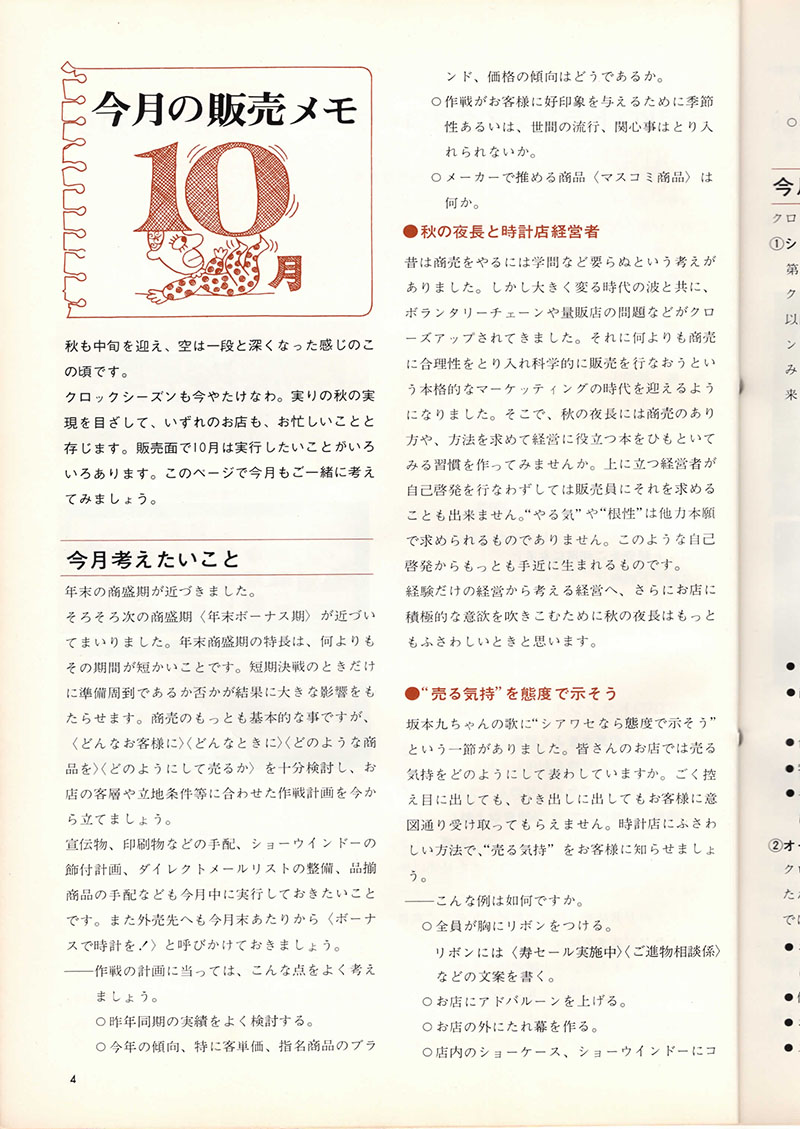 今月の販売メモ
10
月
秋も中旬を迎え、空は一段と深くなった感じのこ
の頃です。
クロックシーズンも今やたけなわ。実りの秋の実
現を目ざして、いずれのお店も、お忙しいことと
存じます。販売面で10月は実行したいことがいろ
いろあります。このページで今月もご一緒に考え
てみましょう。
今月考えたいこと
年末の商盛期が近づきました。
そろそろ次の商盛期〈年末ボーナス期〉が近づい
てまいりました。年末商盛期の特長は、何よりも
その期間が短かいことです。短期決戦のときだけ
に準備周到であるか否かが結果に大きな影響をも
たらせます。商売のもっとも基本的な事ですが、
〈どんなお客様に〉〈どんなときに〉〈どのような商
品を〉〈どのようにして売るか〉を十分検討し、お
店の客層や立地条件等に合わせた作戦計画を今か
ら立てましょう。
宣伝物、印刷物などの手配、ショーウインドーの
飾付計画、ダイレクトメールリストの整備、品揃
商品の手配なども今月中に実行しておきたいこと
です。また外売先へも今月末あたりから〈ボーナ
スで時計を!〉と呼びかけておきましょう。
――作戦の計画に当っては、こんな点をよく考え
ましょう。
○昨年同期の実績をよく検討する。
○今年の傾向、特に客単価、指名商品のブラ
4
ンド、価格の傾向はどうであるか。
○作戦がお客様に好印象を与えるために季節
性あるいは、世間の流行、関心事はとり入
れられないか。
○メーカーで推める商品〈マスコミ商品〉は
何か。
●秋の夜長と時計店経営者
昔は商売をやるには学問など要らぬという考えが
ありました。しかし大きく変る時代の波と共に、
ボランタリーチェーンや量販店の問題などがクロ
ーズアップされてきました。それに何よりも商売
に合理性をとり入れ科学的に販売を行なおうとい
う本格的なマーケッティングの時代を迎えるよう
になりました。そこで、秋の夜長には商売のあり
方や、方法を求めて経営に役立つ本をひもといて
みる習慣を作ってみませんか。上に立つ経営者が
自己啓発を行なわずしては販売員にそれを求める
ことも出来ません。“やる気”や“根性”は他力本願
で求められるものでありません。このような自己
啓発からもっとも手近に生まれるものです。
経験だけの経営から考える経営へ、さらにお店に
積極的な意欲を吹きこむために秋の夜長はもっと
もふさわしいときと思います。
●“売る気持”を態度で示そう
坂本九ちゃんの歌に“シアワセなら態度で示そう”
という一節がありました。皆さんのお店では売る
気持をどのようにして表わしていますか。ごく控
え目に出しても、むき出しに出してもお客様に意
図通り受け取ってもらえません。時計店にふさわ
しい方法で、“売る気持”をお客様に知らせましょ
う。
――こんな例は如何ですか。
○全員が胸にリボンをつける。
リボンには〈寿セール実施中〉〈ご進物相談係〉
などの文案を書く。
○お店にアドバルーンを上げる。
○お店の外にたれ幕を作る。
○店内のショーケース、ショーウインドーにコ
○
今
クロ
①シ
第
ク
以
ン
み
来
②オ
クロ
たれ